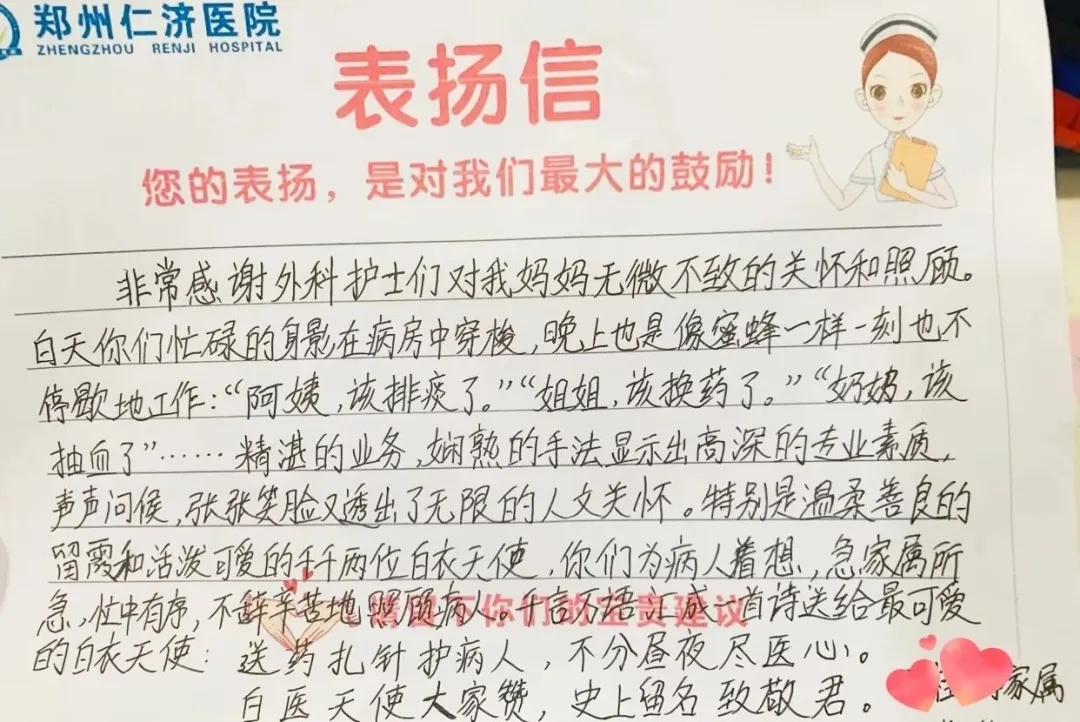 郑州仁济医院
ZHENGZHOU RENJI HOSPITAL
表扬信
您的表扬，是对我们最大的鼓励！
非常感谢外科护士们对我妈妈无微不致的关怀和照顾。
白天你们忙碌的身影在病房中穿梭，晚上也是像蜜蜂一样一刻也不
停歇地工作：“阿姨，该排痰了。”“姐姐，该换药了。”“奶奶，该
抽血了”……精湛的业务，娴熟的手法显示出高深的专业素质，
声声问候，张张笑脸又透出了无限的人文关怀。特别是温柔善良的
留霞和活泼可爱的千千两位白衣天使，你们为病人着想，急家属所
急，忙中有序，不辞辛苦地照顾病人。千言不语汇成一首诗送给最可爱
请留下你们的宝贵建议
的白衣天使：送药扎针护病人，不分昼夜尽医心。
白医天使大家赞，史上留名致敬君。
家属